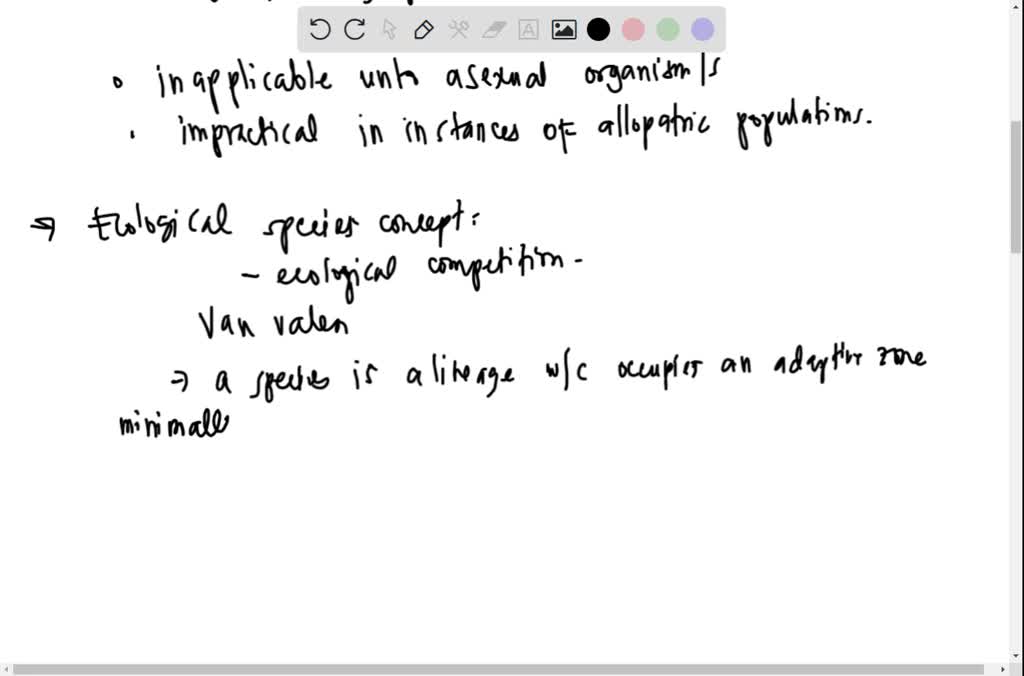 • inapplicable unto asexual organism/s
• impractical in instances of allopatric populations.
⇒ Ecological species concept:
- ecological competition -
Van valen
⇒ a species is a lineage w/c occupies an adaptive zone
minimally